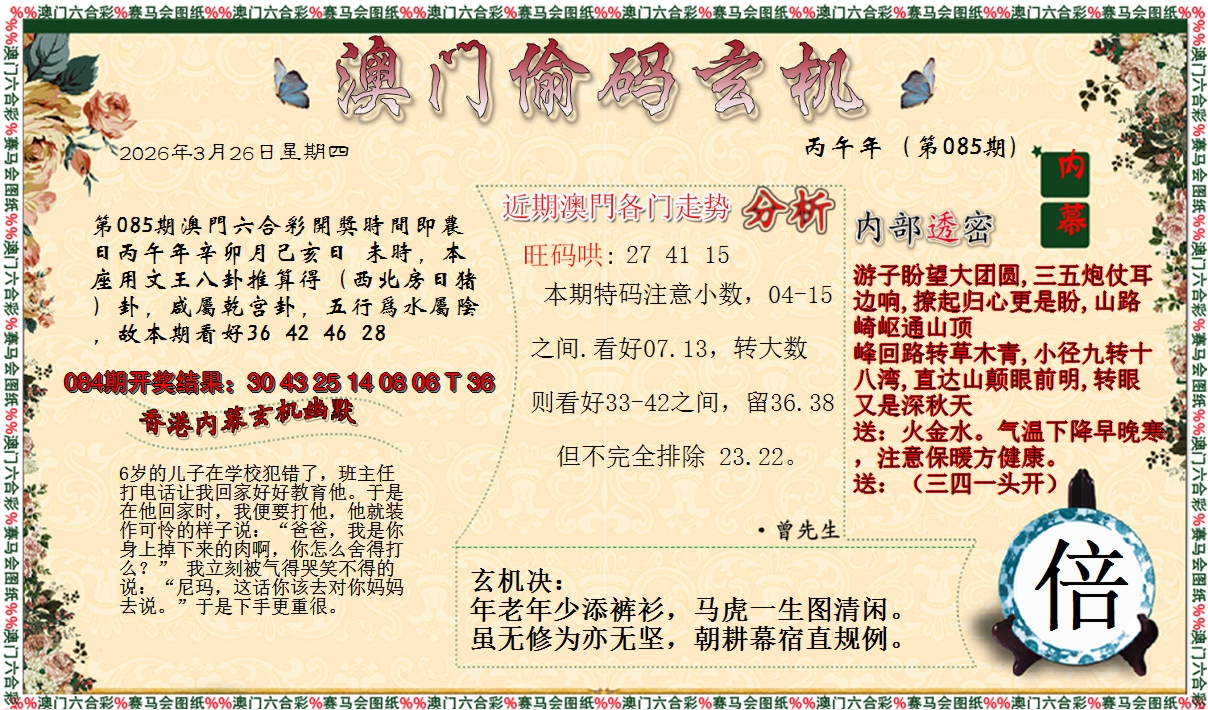 %%澳门六合彩%赛马会图纸%%澳门六合彩%赛马会图纸%%澳门六合彩%赛马会图纸%%澳门六合彩%赛马会图纸%%澳门六合彩%赛马会图纸%%澳门六合彩%赛马会图纸%%
澳门偷码玄机
2026年3月26日星期四
丙午年（第085期）
内幕
第085期澳門六合彩開獎時間即農
日丙午年辛卯月己亥日 未時，本
座用文王八卦推算得（西北房日猪
）卦，咸屬乾宫卦，五行爲水屬陰
，故本期看好36 42 46 28
084期开奖结果：30 43 25 14 08 06 T 36
香港内幕玄机幽默
6岁的儿子在学校犯错了，班主任
打电话让我回家好好教育他。于是
在他回家时，我便要打他，他就装
作可怜的样子说：“爸爸，我是你
身上掉下来的肉啊，你怎么舍得打
么？” 我立刻被气得哭笑不得的
说：“尼玛，这话你该去对你妈妈
去说。”于是下手更重很。
近期澳門各门走势 分析
旺码哄: 27 41 15
本期特码注意小数，04-15
之间.看好07.13，转大数
则看好33-42之间，留36.38
但不完全排除 23.22。
·曾先生
内部透密
游子盼望大团圆,三五炮仗耳
边响,撩起归心更是盼,山路
崎岖通山顶
峰回路转草木青,小径九转十
八湾,直达山颠眼前明,转眼
又是深秋天
送：火金水。气温下降早晚寒
，注意保暖方健康。
送：（三四一头开）
玄机决：
年老年少添裤衫，马虎一生图清闲。
虽无修为亦无坚，朝耕幕宿直规例。
倍
%%澳门六合彩%赛马会图纸%%澳门六合彩%赛马会图纸%%澳门六合彩%赛马会图纸%%澳门六合彩%赛马会图纸%%澳门六合彩%赛马会图纸%%澳门六合彩%赛马会图纸%%